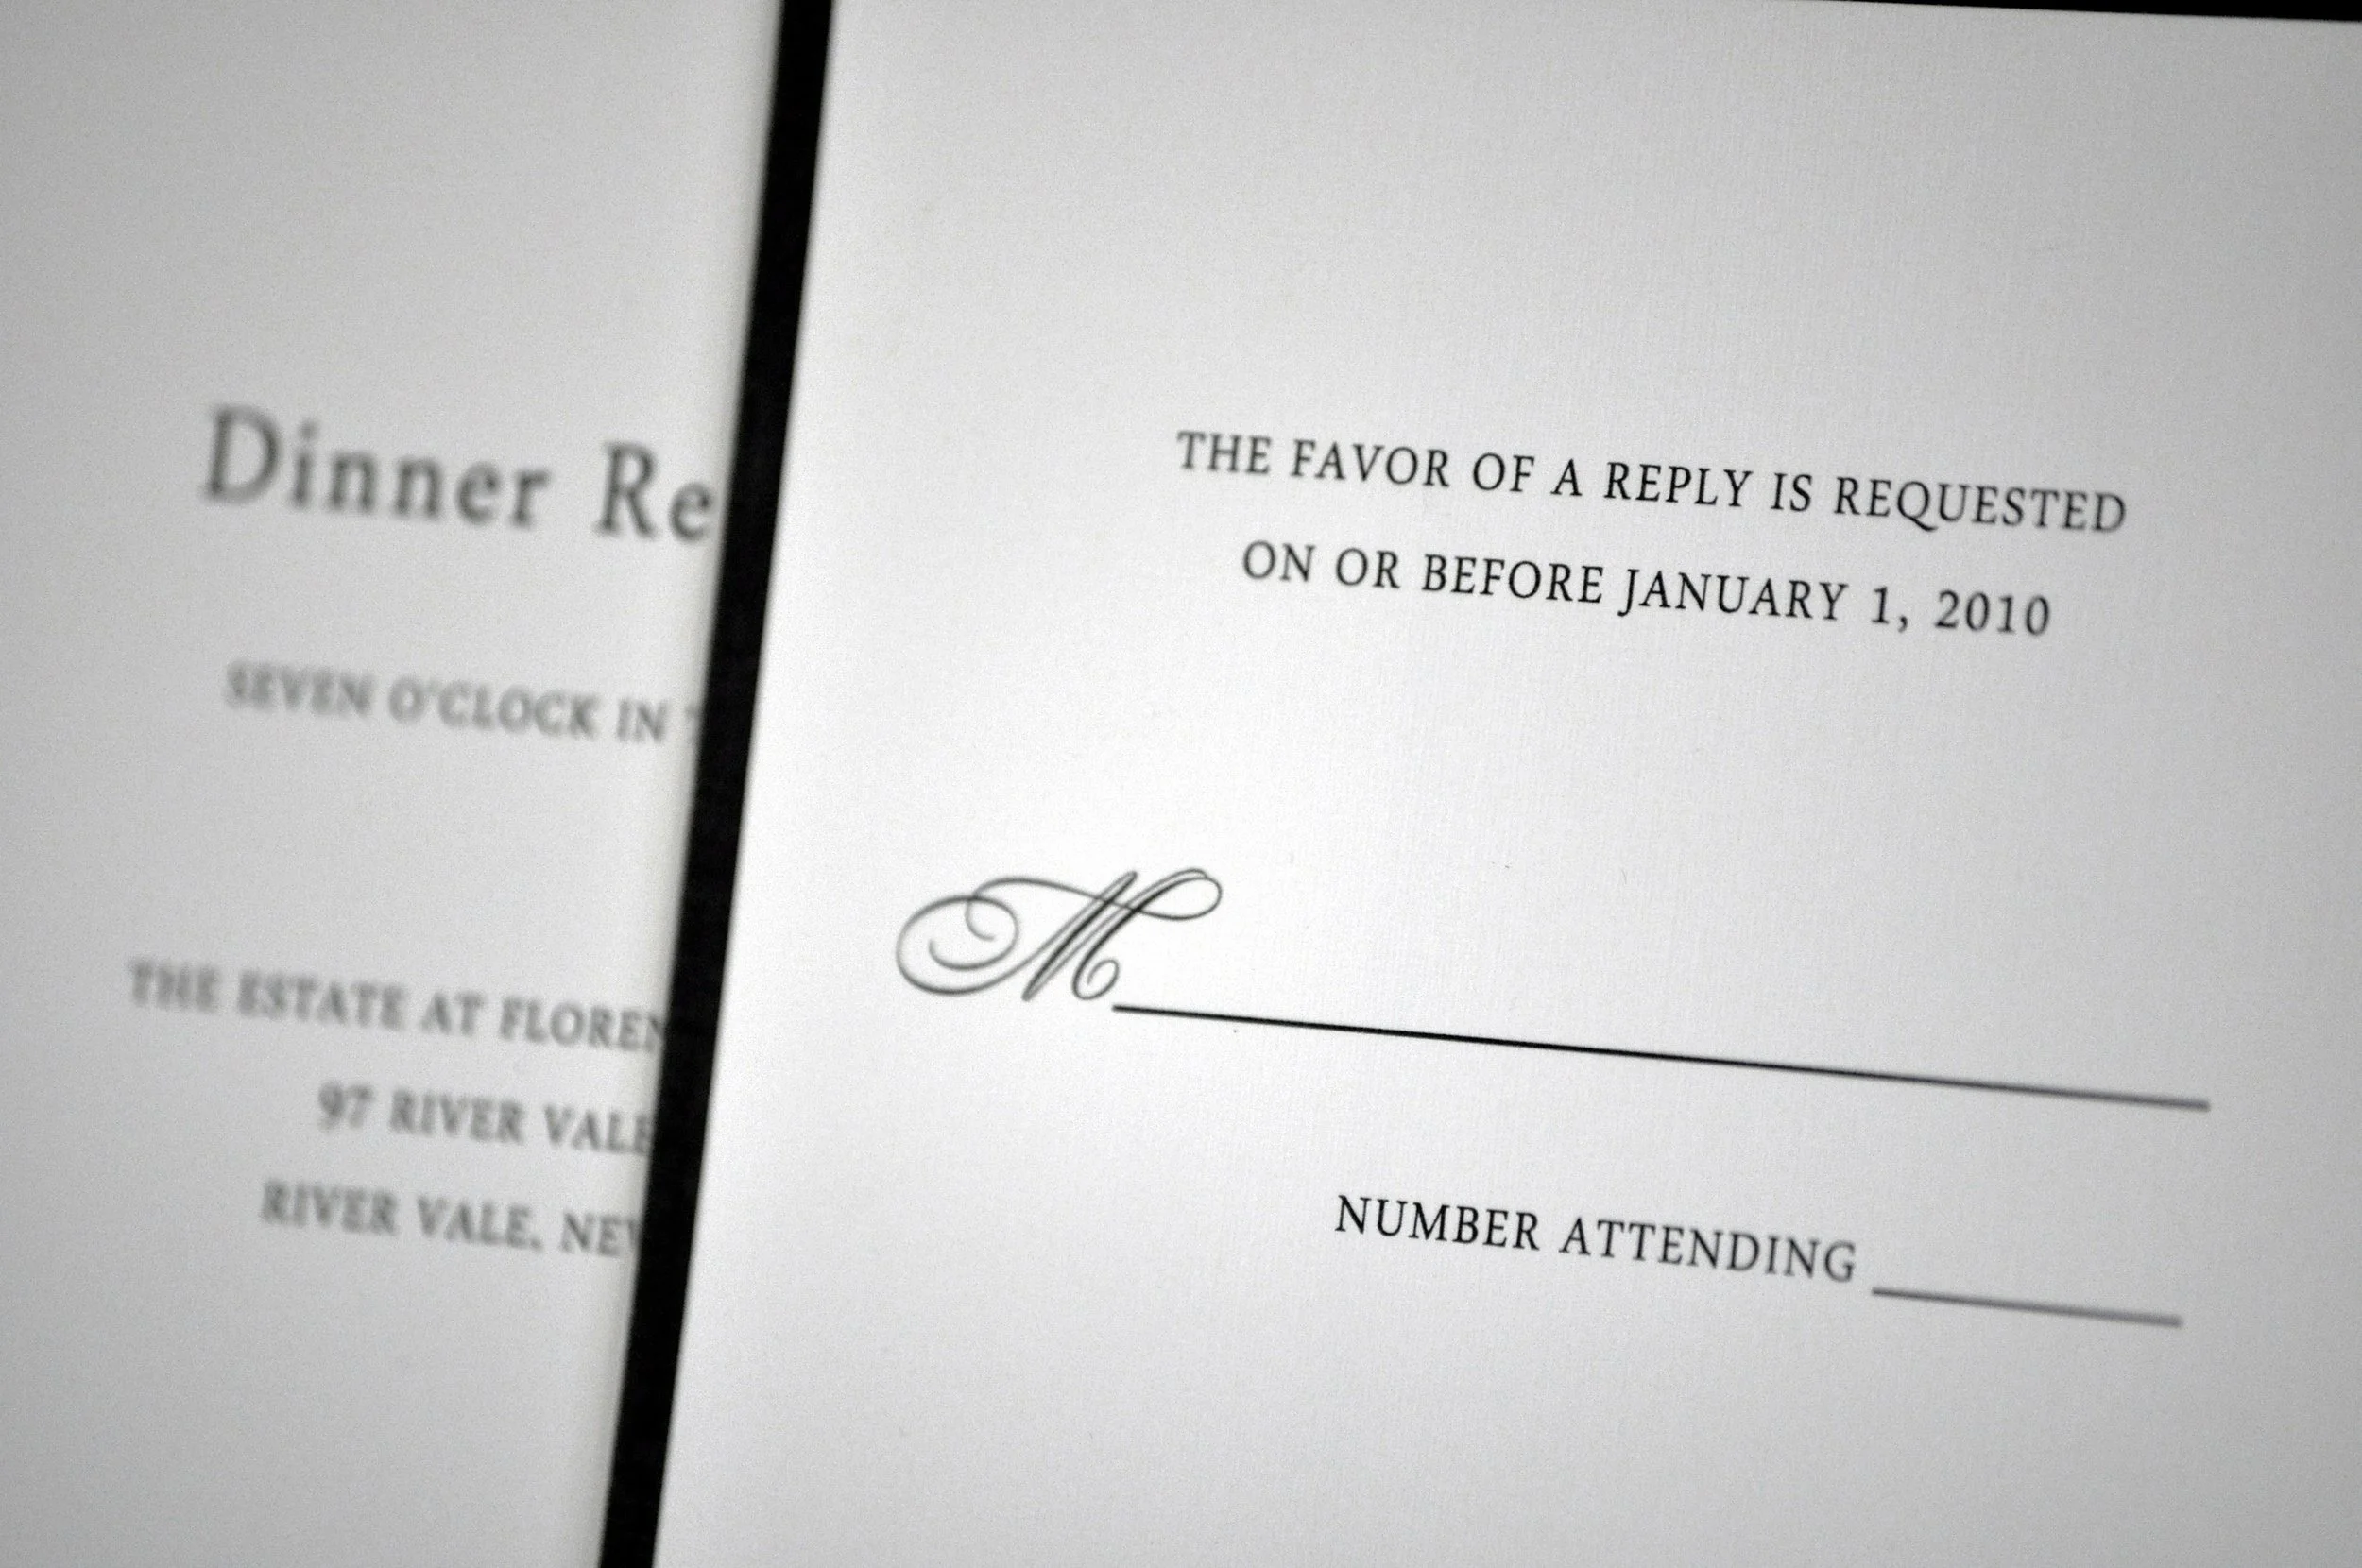 Dinner Re
SEVEN O'CLOCK IN
THE ESTATE AT FLOREN
97 RIVER VALE
RIVER VALE, NEW
THE FAVOR OF A REPLY IS REQUESTED
ON OR BEFORE JANUARY 1, 2010
M
NUMBER ATTENDING